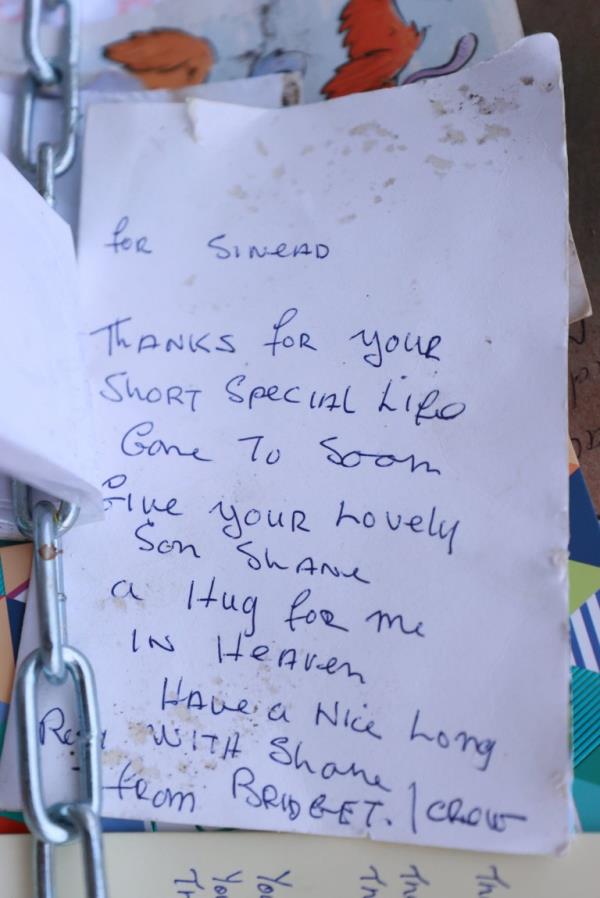 for SINEAD
THANKS for your
SHORT SPECIAL LIFE
Gone To Soon
Give your Lovely
Son SHANE
a Hug for me
IN HEAVEN
HAVE a Nice Long
WITH Shane
from BRIDGET. / CROW